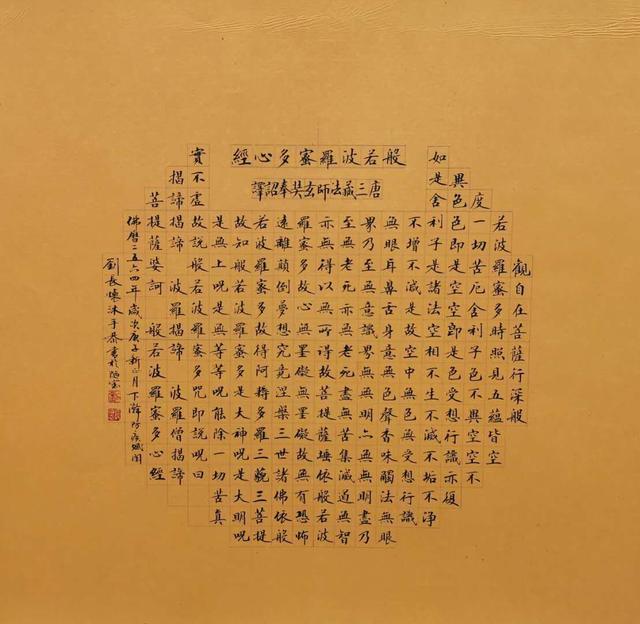 般若波羅蜜多心經
唐三藏法師玄奘奉詔譯
觀自在菩薩行深般
若波羅蜜多時照見五蘊皆空
度一切苦厄舍利子色不異空空不
異色色即是空空即是色受想行識亦復
如是舍利子是諸法空相不生不滅不垢不淨
不增不減是故空中無色無受想行識
無眼耳鼻舌身意無色聲香味觸法無眼
界乃至無意識界無無明亦無無明盡乃
至無老死亦無老死盡無苦集滅道無智
亦無得以無所得故菩提薩埵依般若波
羅蜜多故心無罣礙無罣礙故無有恐怖
遠離顛倒夢想究竟涅槃三世諸佛依般
若波羅蜜多故得阿耨多羅三藐三菩提
故知般若波羅蜜多是大神呪是大明呪
是無上呪是無等等呪能除一切苦真
實不虛故說般若波羅蜜多呪即說呪曰
揭諦揭諦 波羅揭諦 波羅僧揭諦
菩提薩婆訶 般若波羅蜜多心經
佛曆二五六四年歲次庚子新正月下澣防疫
劉長懷沐手恭書於陋室